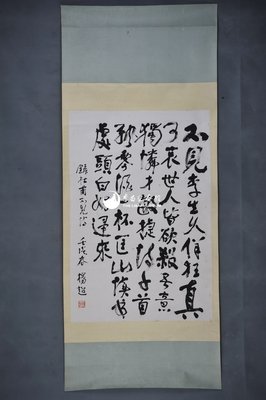 不見李生久佯狂真
可哀世人皆欲殺吾意
獨憐才敏捷詩千首
飄零酒一杯匡山讀書
處頭白好歸來
錄杜甫不見詩 壬戌春 楊超